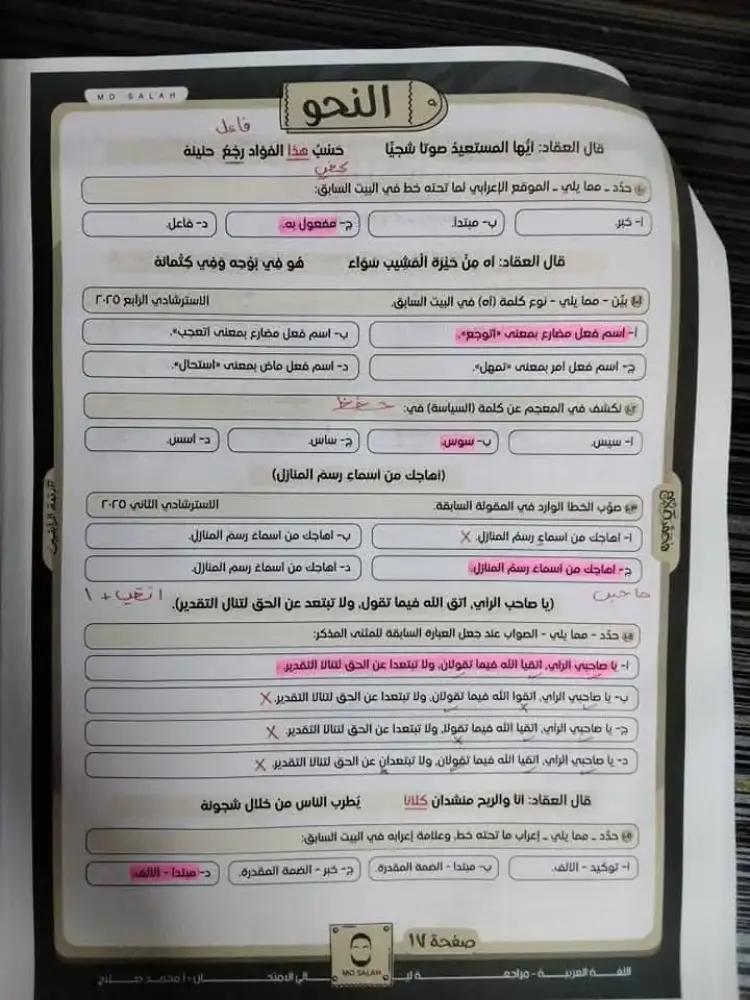 MO SALAH
النحو
فاعل
قال العقاد: أيُّها المستعيدُ صوتا شجيًا حَسْبُ هذا الفؤاد رَجْعُ حنينهْ
يكفي
٨٠ حدِّد ـ مما يلي ـ الموقع الإعرابي لما تحته خط في البيت السابق:
أ- خبر. ب- مبتدأ. ج- مفعول به. د- فاعل.
قال العقاد: آه مِنْ حَيْرَة الْمَشِيب سَوَاء هُو فِي بَوْحِه وَفِي كِتْمَانهْ
٨١ بيِّن - مما يلي - نوع كلمة (آه) في البيت السابق. الاسترشادي الرابع ٢٠٢٥
أ- اسم فعل مضارع بمعنى «أتوجع». ب- اسم فعل مضارع بمعنى «أتعجب».
ج- اسم فعل أمر بمعنى «تمهل». د- اسم فعل ماض بمعنى «استحال».
٨٢ نكشف في المعجم عن كلمة (السياسة) في: حفظ
أ- سيس. ب- سوس. ج- ساس. د- أسس.
(أهاجك من أسماءِ رسمَ المنازل)
٨٣ صوِّب الخطأ الوارد في المقولة السابقة. الاسترشادي الثاني ٢٠٢٥
أ- أهاجك من أسماءِ رسمُ المنازل. X ب- أهاجك من أسماءُ رسمَ المنازل.
ج- أهاجك من أسماءَ رسمُ المنازل. د- أهاجك من أسماءَ رسمَ المنازل.
صاحبى اتقيا + ا
(يا صاحب الرأي، اتق الله فيما تقول، ولا تبتعد عن الحق لتنال التقدير).
٨٤ حدِّد - مما يلي - الصواب عند جعل العبارة السابقة للمثنى المذكر:
أ- يا صاحبي الرأي، اتقيا الله فيما تقولان، ولا تبتعدا عن الحق لتنالا التقدير.
ب- يا صاحبي الرأي، اتقوا الله فيما تقولان، ولا تبتعدا عن الحق لتنالا التقدير. X
ج- يا صاحبي الرأي، اتقيا الله فيما تقولا، ولا تبتعدا عن الحق لتنالا التقدير. X
د- يا صاحبي الرأي، اتقيا الله فيما تقولان، ولا تبتعدان عن الحق لتنالا التقدير. X
قال العقاد: أنا والريح منشدان كلانا يُطرب الناس من خلال شجونهْ
٨٥ حدِّد ـ مما يلي ـ إعراب ما تحته خط، وعلامة إعرابه في البيت السابق:
أ- توكيد - الألف. ب- مبتدأ - الضمة المقدرة. ج- خبر - الضمة المقدرة. د- مبتدأ - الألف.
صفحة ١٧
MO SALAH
اللغـــة العربيـــة - مراجعـ